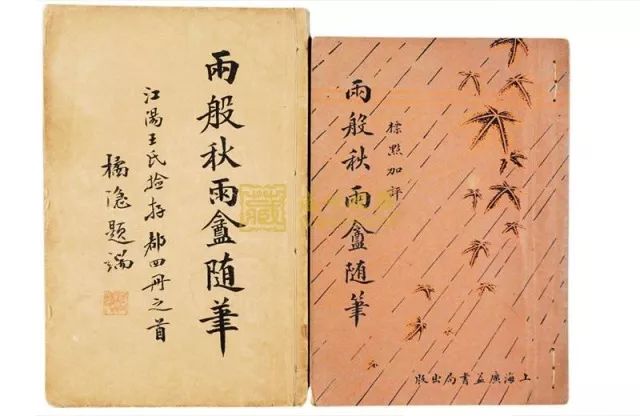 兩般秋雨盦随筆
江陽王氏撿存都四冊之首
橘隐題端
標點加評
兩般秋雨盦隨筆
上海廣益書局出版
藏